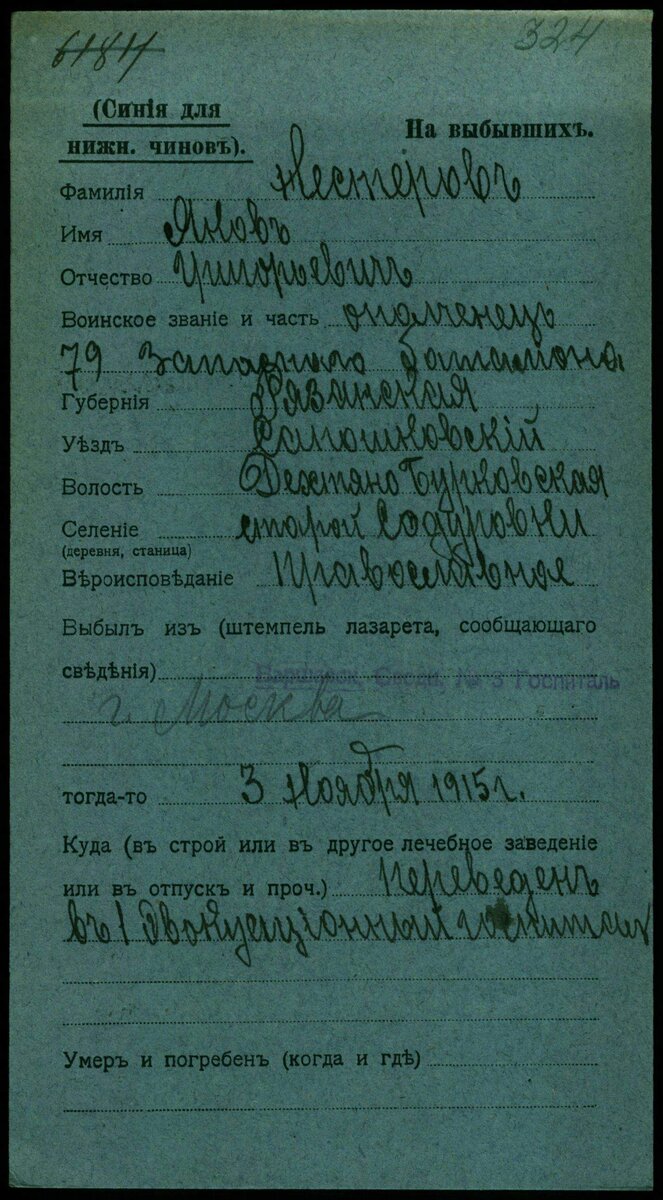 61811 324
(Синія для
нижн. чиновъ).
На выбывшихъ.
Фамилія Нестеровъ
Имя Яковъ
Отчество Григорьевичъ
Воинское званіе и часть ополченецъ
79 Запасного баталиона
Губернія Рязанская
Уѣздъ Сапожковскій
Волость Дехтяно Бурковская
Селеніе старой Содуровки
(деревня, станица)
Вѣроисповѣданіе Православное
Выбылъ изъ (штемпель лазарета, сообщающаго
свѣдѣнія) № 3 Госпиталь
г. Москва
тогда-то 3 Ноября 1915 г.
Куда (въ строй или въ другое лечебное заведеніе
или въ отпускъ и проч.) Переведенъ
въ 1 Эвокуаціонный госпиталь
Умеръ и погребенъ (когда и гдѣ)